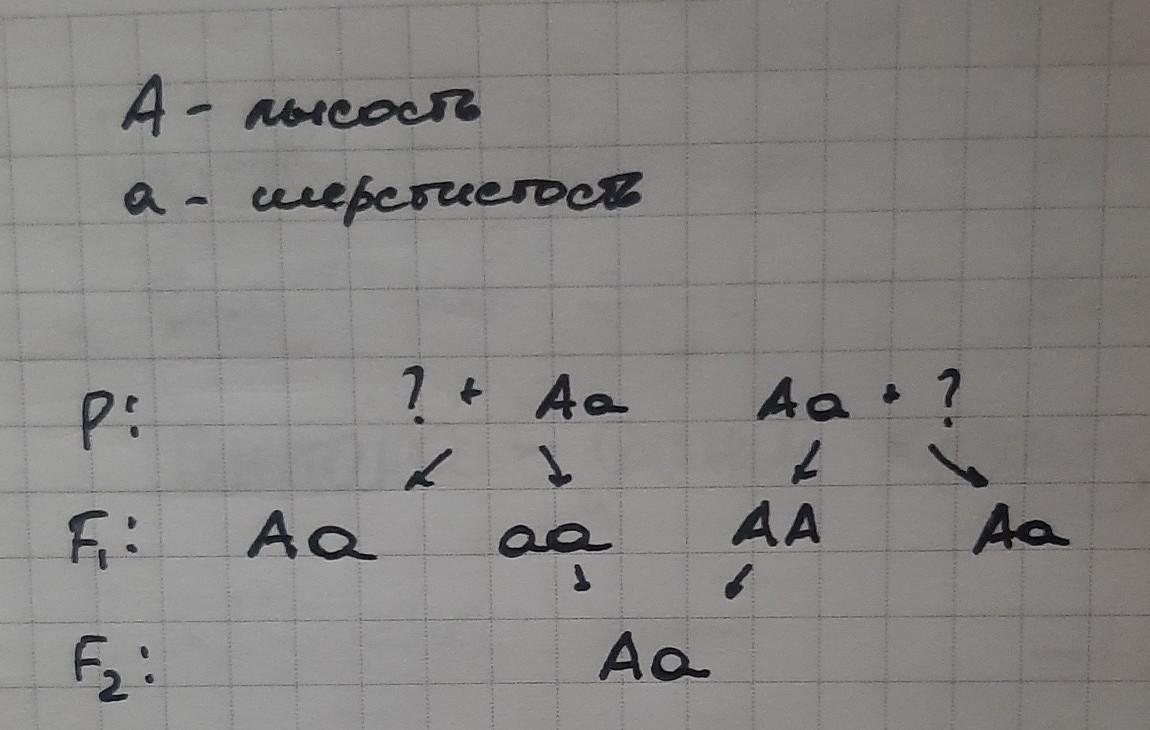 A - лысость
a - шерстистость
P: ? + Aa Aa + ?
↙ ↘ ↙ ↘
F₁: Aa aa AA Aa
↘ ↙
F₂: Aa